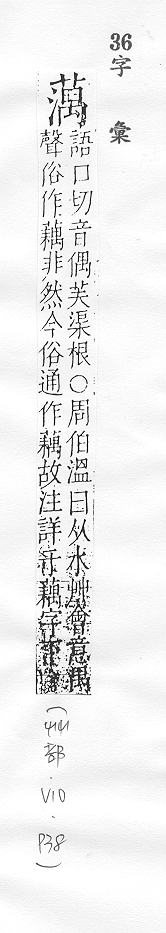 36字 彙
蕅
語口切音偶芙渠根○周伯溫曰从水艸會意禺
聲俗作藕非然今俗通作藕故注詳于藕字
(艸部.V10.P38)